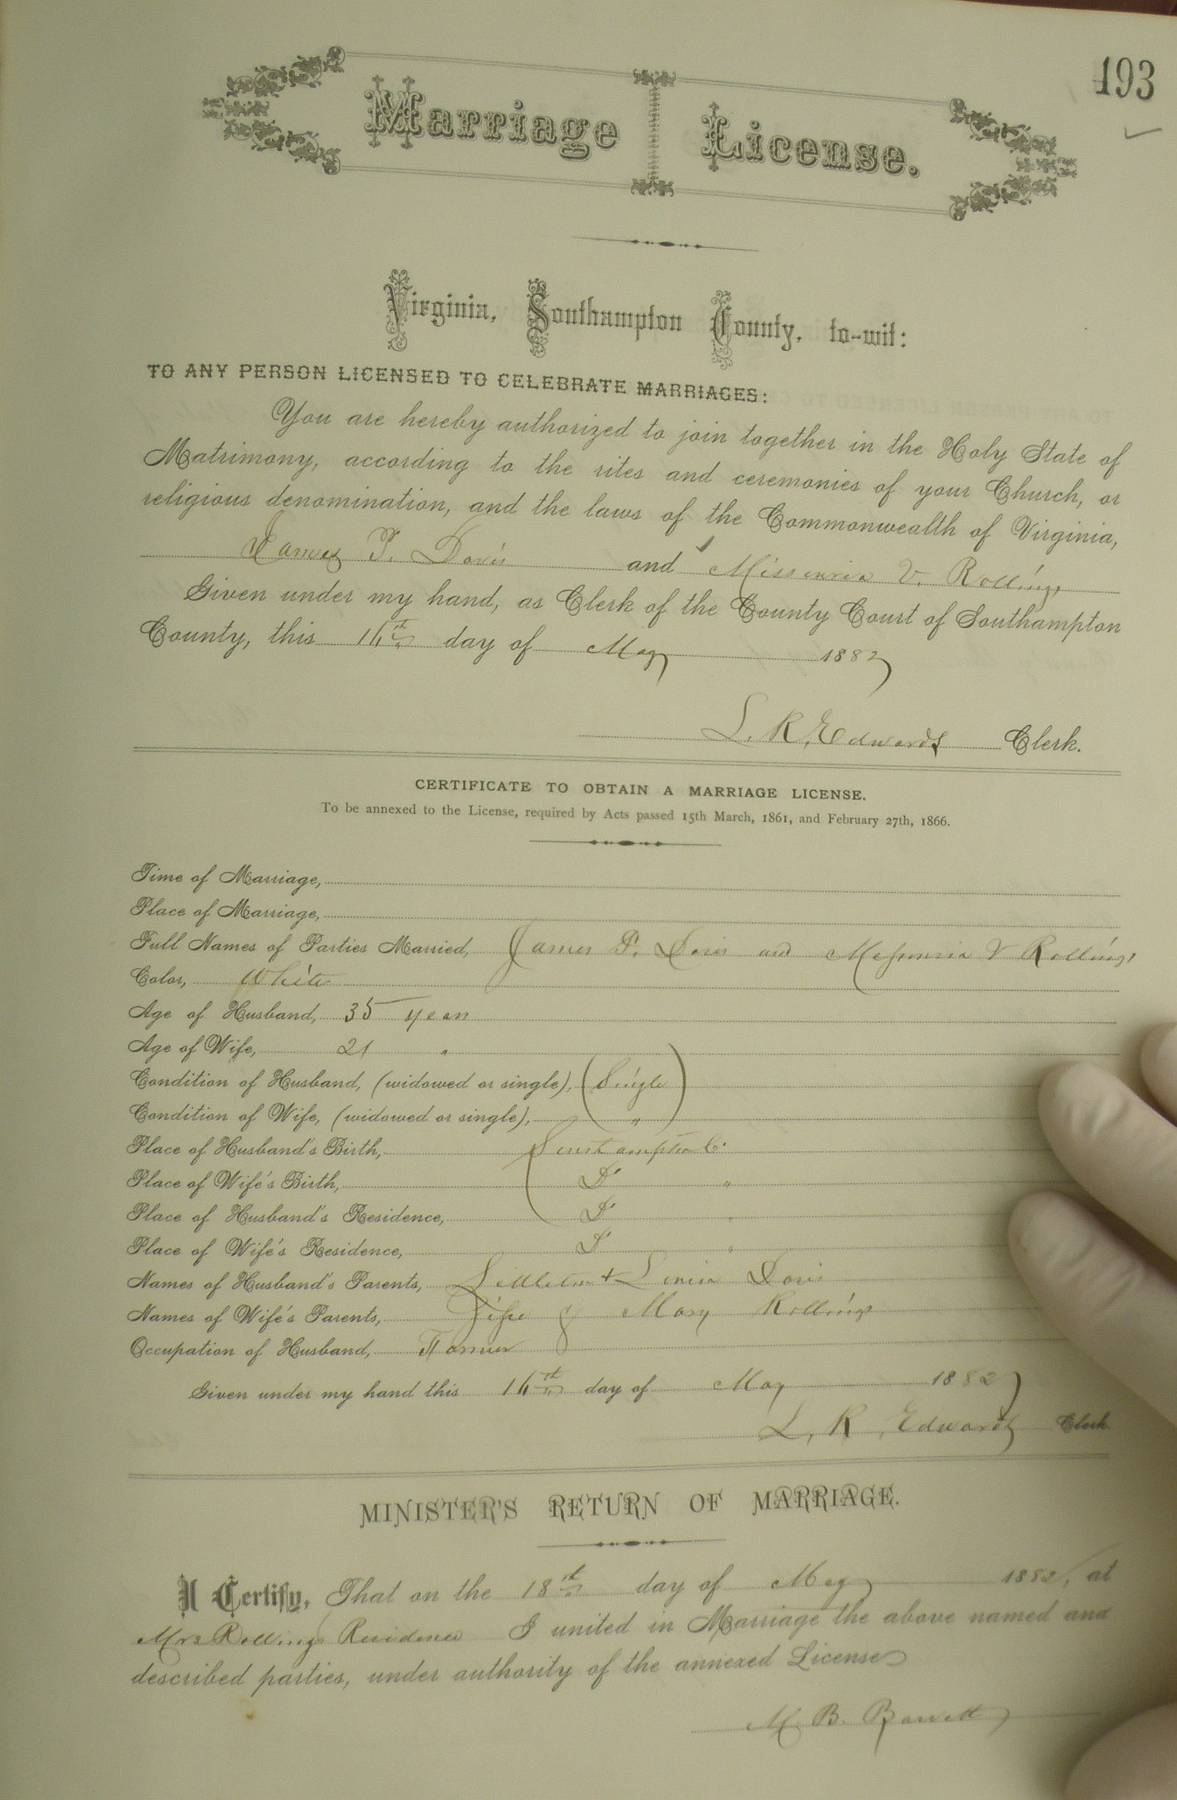 193
Marriage License.
Virginia, Southampton County, to-wit:
TO ANY PERSON LICENSED TO CELEBRATE MARRIAGES:
You are hereby authorized to join together in the Holy State of
Matrimony, according to the rites and ceremonies of your Church, or
religious denomination, and the laws of the Commonwealth of Virginia,
James T. Davis and Missouria V. Rollings
Given under my hand, as Clerk of the County Court of Southampton
County, this 16th day of May 1882
L. R. Edwards Clerk.
CERTIFICATE TO OBTAIN A MARRIAGE LICENSE.
To be annexed to the License, required by Acts passed 15th March, 1861, and February 27th, 1866.
Time of Marriage,
Place of Marriage,
Full Names of Parties Married, James T. Davis and Missouria V Rollings
Color, White
Age of Husband, 35 years
Age of Wife, 21 "
Condition of Husband, (widowed or single), Single
Condition of Wife, (widowed or single), "
Place of Husband's Birth, Southampton Co
Place of Wife's Birth, Do "
Place of Husband's Residence, Do "
Place of Wife's Residence, Do "
Names of Husband's Parents, Littleton + Davis
Names of Wife's Parents, & Mary Rollings
Occupation of Husband, Farmer
Given under my hand this 16th day of May 1882
L. R. Edwards Clerk
MINISTER'S RETURN OF MARRIAGE.
I Certify, That on the 18th day of May 1882, at
Mrs Rollings Residence I united in Marriage the above named and
described parties, under authority of the annexed License
M. B. Barrett